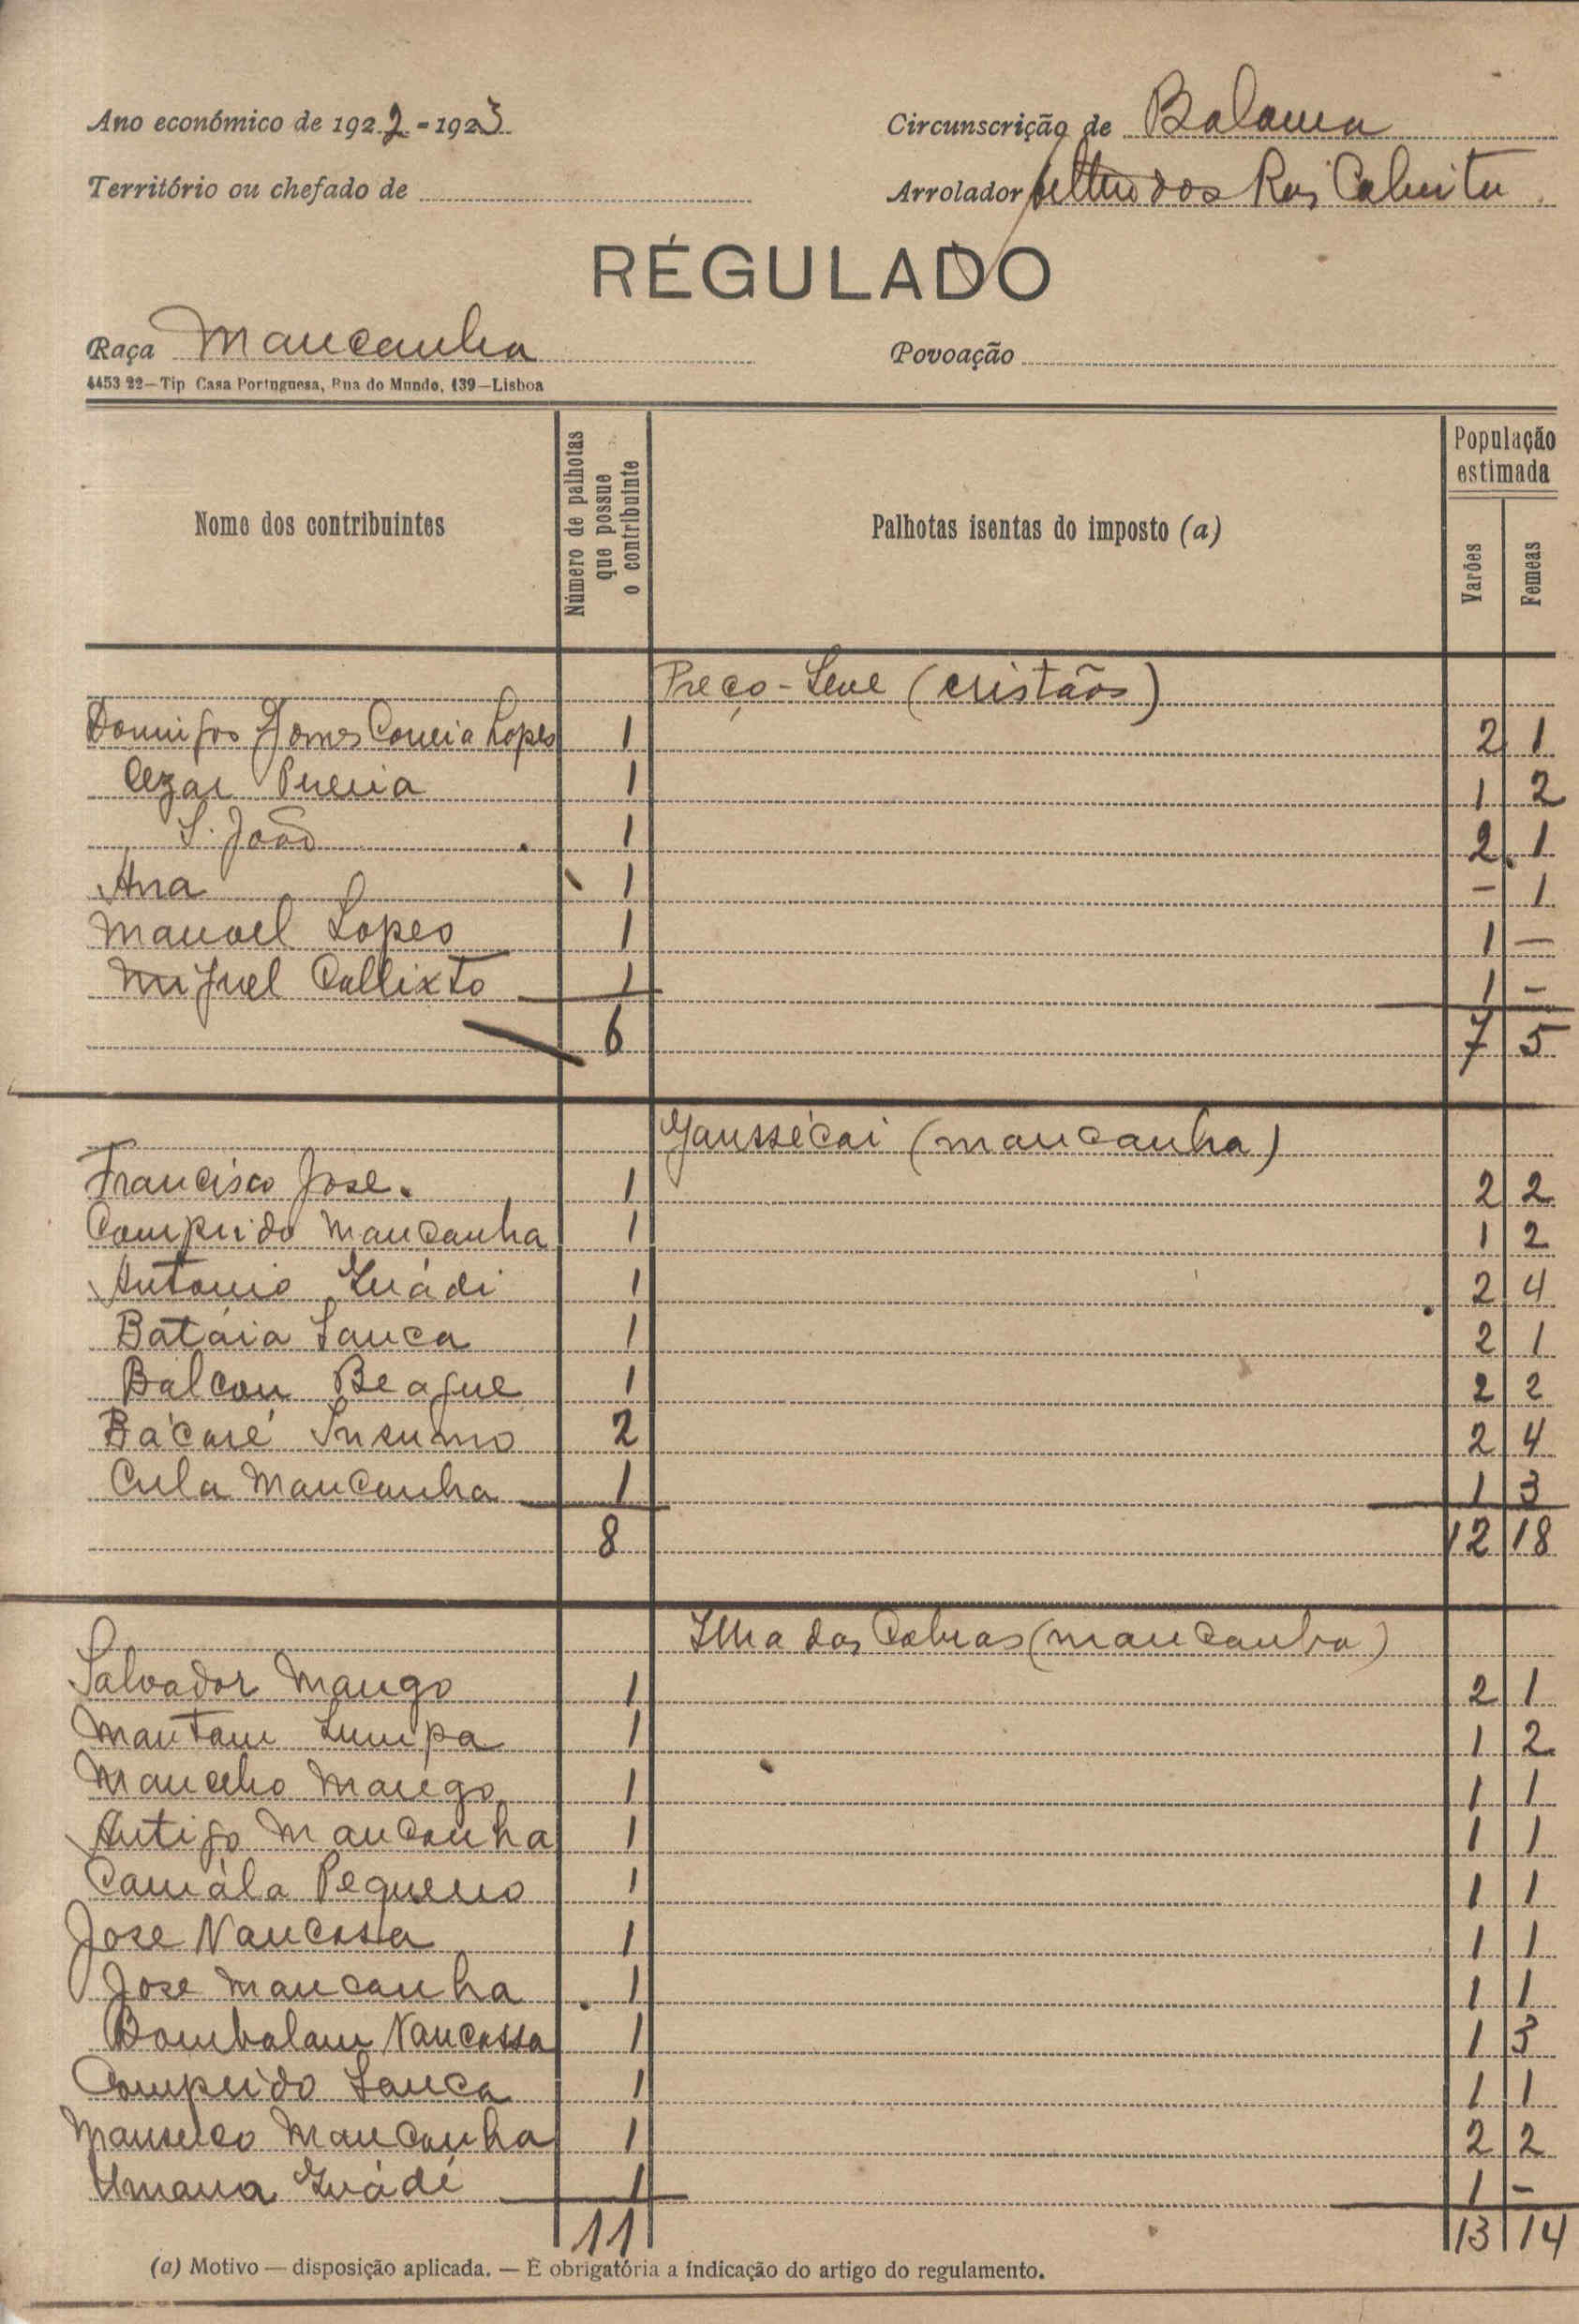 Ano económico de 1922-1923
Circunscrição de Bolama
Território ou chefado de
Arrolador dos Reis Cabrita
RÉGULADO
Raça Mancanha
Povoação
4453 22—Tip Casa Portuguesa, Rua do Mundo, 139—Lisboa
Nome dos contribuintes
Número de palhotas que possue o contribuinte
Palhotas isentas do imposto (a)
População estimada
Varões
Femeas
Preço-Leve (cristãos)
Domingos Gomes Correia Lopes 1 2 1
Cezar Pereira 1 1 2
S. João 1 2 1
Ana 1 - 1
Manoel Lopes 1 1 -
Miguel Callixto 1 1 -
6 7 5
Gaussécai (mancanha)
Francisco Jose. 1 2 2
Comprido Mancanha 1 1 2
Antonio Guádi 1 2 4
Batáia Sanca 1 2 1
Balcan Beague 1 2 2
Bácaré 2 2 4
Cula Mancanha 1 1 3
8 12 18
Ilha das Cobras (mancanha)
Salvador Mango 1 2 1
Mantam Lumpa 1 1 2
Mango 1 1 1
Antigo Mancanha 1 1 1
Camála Pequeno 1 1 1
Jose Nancassa 1 1 1
Jose Mancanha 1 1 1
Bombalam Nancassa 1 1 3
Comprido Sanca 1 1 1
Mancanha 1 2 2
Umana Guádi 1 1 -
11 13 14
(a) Motivo — disposição aplicada. — É obrigatória a indicação do artigo do regulamento.